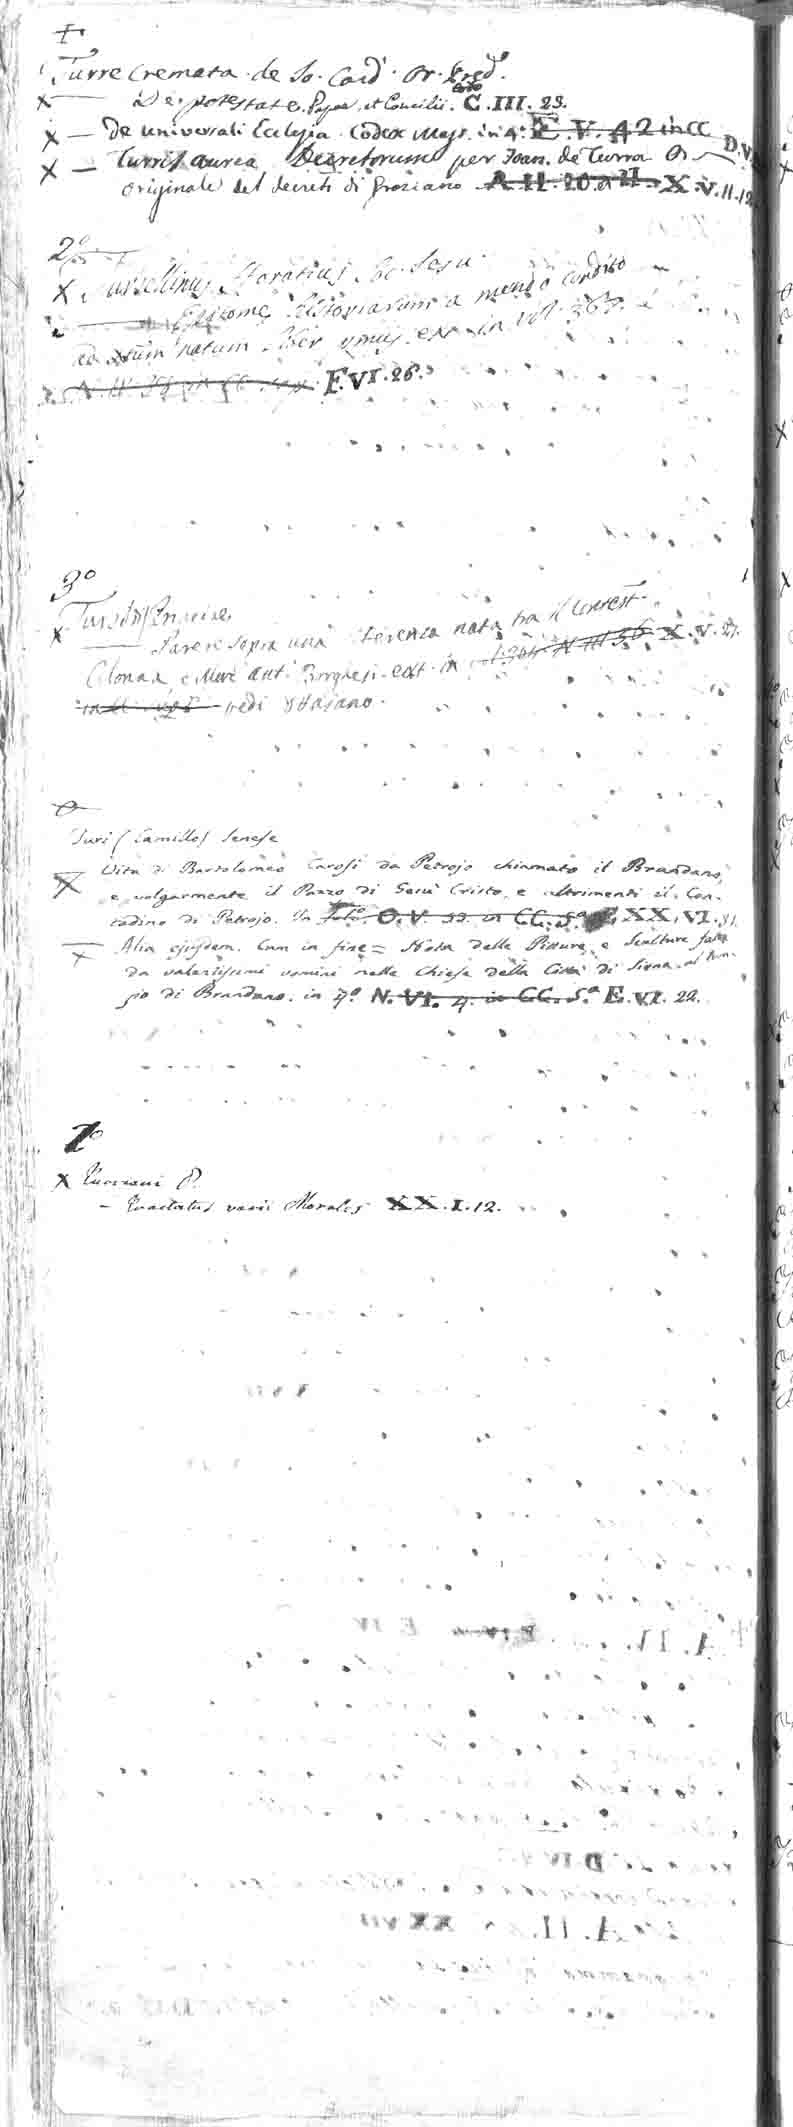 +
Turre Cremata de Jo. Card. Or. Pred.
X — De potestate Papae, et Concilii. Codex C. III. 23.
X — De universali Ecclesia Codex Mss. in 4.° E. V. 42 in CC D. V.
X — Turris aurea Decretorum per Joan. de Turre
originale del decreti di Graziano A. II. 20. X. V. 11. 12
2°
X Tursellinus Horatius Soc. Jesu
— Epitome Historiarum a mundo condito
ad suum natum liber unus ext. in Vol. 363.
F. VI. 26.
3°
X — Parere sopra una sentenza nata tra il Contest.
Colonna e Marc' Ant. Borghesi. ext. in X. V. 27.
vedi
Turi (Camillo) Senese
X Vita di Bartolomeo Carosi da Petrojo chiamato il Brandano,
e volgarmente il Pazzo di Gesù Cristo, e altrimenti il Con-
tadino di Petrojo. In fol.° O. V. 33. in CC. 5.ª XX. VI. 31.
X Alia ejusdem. Cum in fine = Nota delle Pitture, e Scolture fatte
da valentissimi uomini nelle Chiese della Città di Siena, al tem-
po di Brandano. in 4.° N. VI. 4. in CC. 5.ª E. VI. 22.
1°
X
— Tractatus varii Morales XX. I. 12.